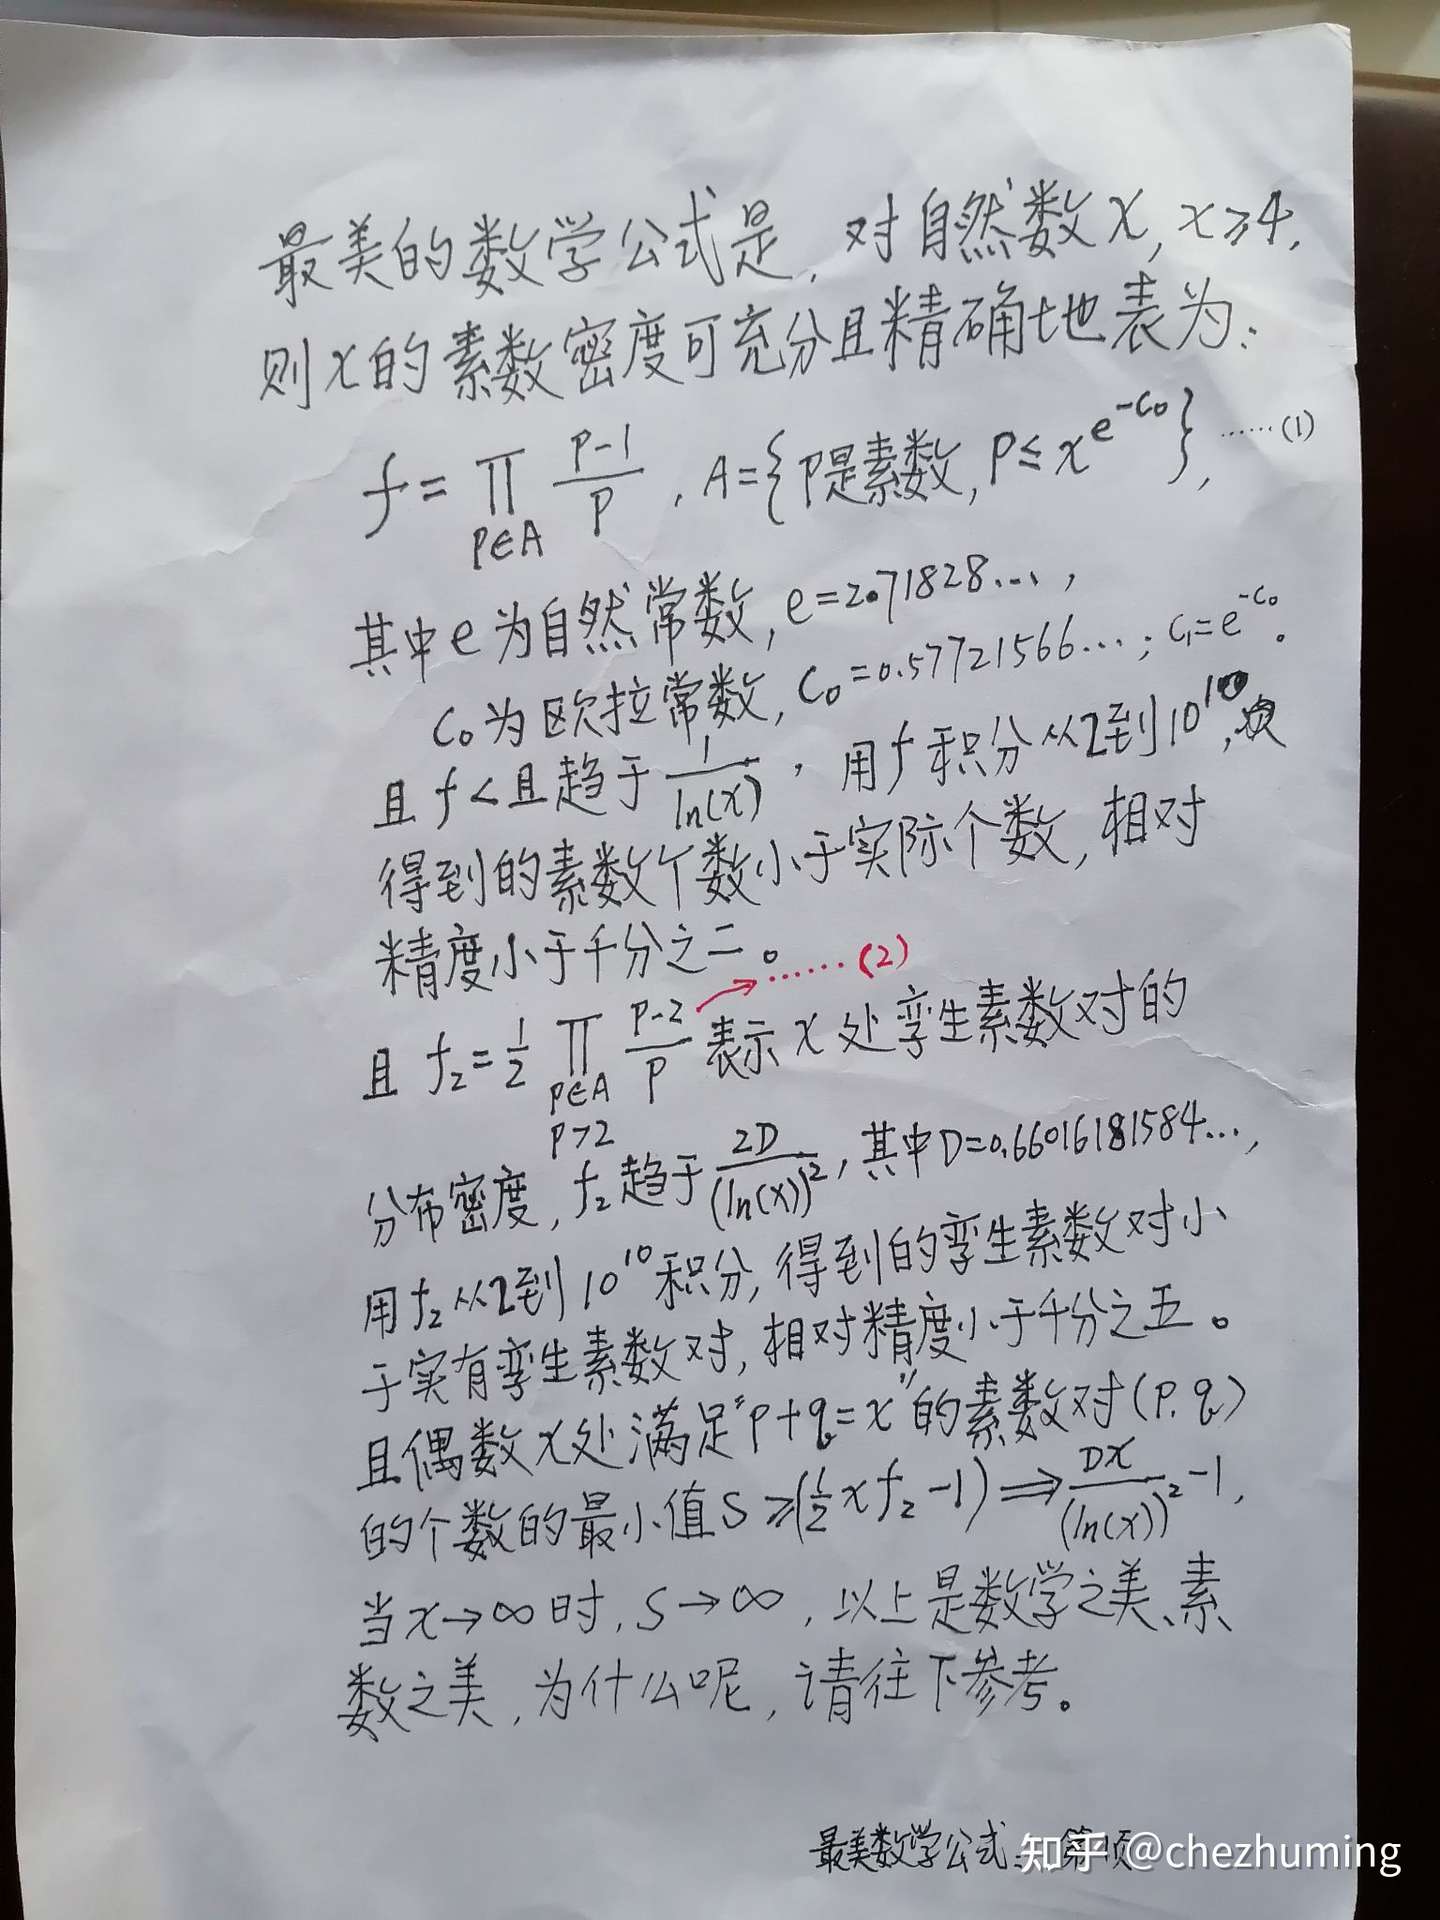 最美的数学公式是,对自然数x,x≥4,
则x的素数密度可充分且精确地表为:
f=∏_{p∈A} (p-1)/p,A={p是素数,p≤x^{e^{-C₀}}},……(1)
其中e为自然常数,e=2.71828…,
C₀为欧拉常数,C₀=0.57721566…;C₁=e^{-C₀}。
且f<且趋于1/ln(x),用f积分从2到10^{10},
得到的素数个数小于实际个数,相对
精度小于千分之二。
……(2)
且f₂=1/2 ∏_{p∈A p>2} (p-2)/p 表示x处孪生素数对的
分布密度,f₂趋于2D/(ln(x))²,其中D=0.66016181584…,
用f₂从2到10^{10}积分,得到的孪生素数对小
于实有孪生素数对,相对精度小于千分之五。
且偶数x处满足"p+q=x"的素数对(p.q)
的个数的最小值S≥(1/2 x f₂-1)⇒Dx/(ln(x))²-1,
当x→∞时,S→∞,以上是数学之美、素
数之美,为什么呢,请往下参考。
最美数学公式
知乎 @chezhuming